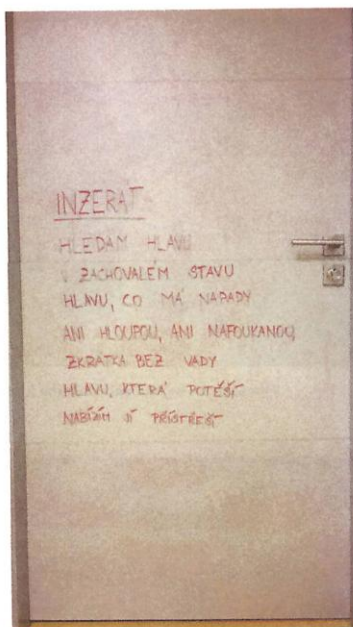 INZERÁT
HLEDÁM HLAVU
V ZACHOVALÉM STAVU
HLAVU, CO MÁ NÁPADY
ANI HLOUPOU, ANI NAFOUKANOU,
ZKRÁTKA BEZ VADY
HLAVU, KTERÁ POTĚŠÍ
NABÍZÍM JÍ PŘÍSTŘEŠÍ